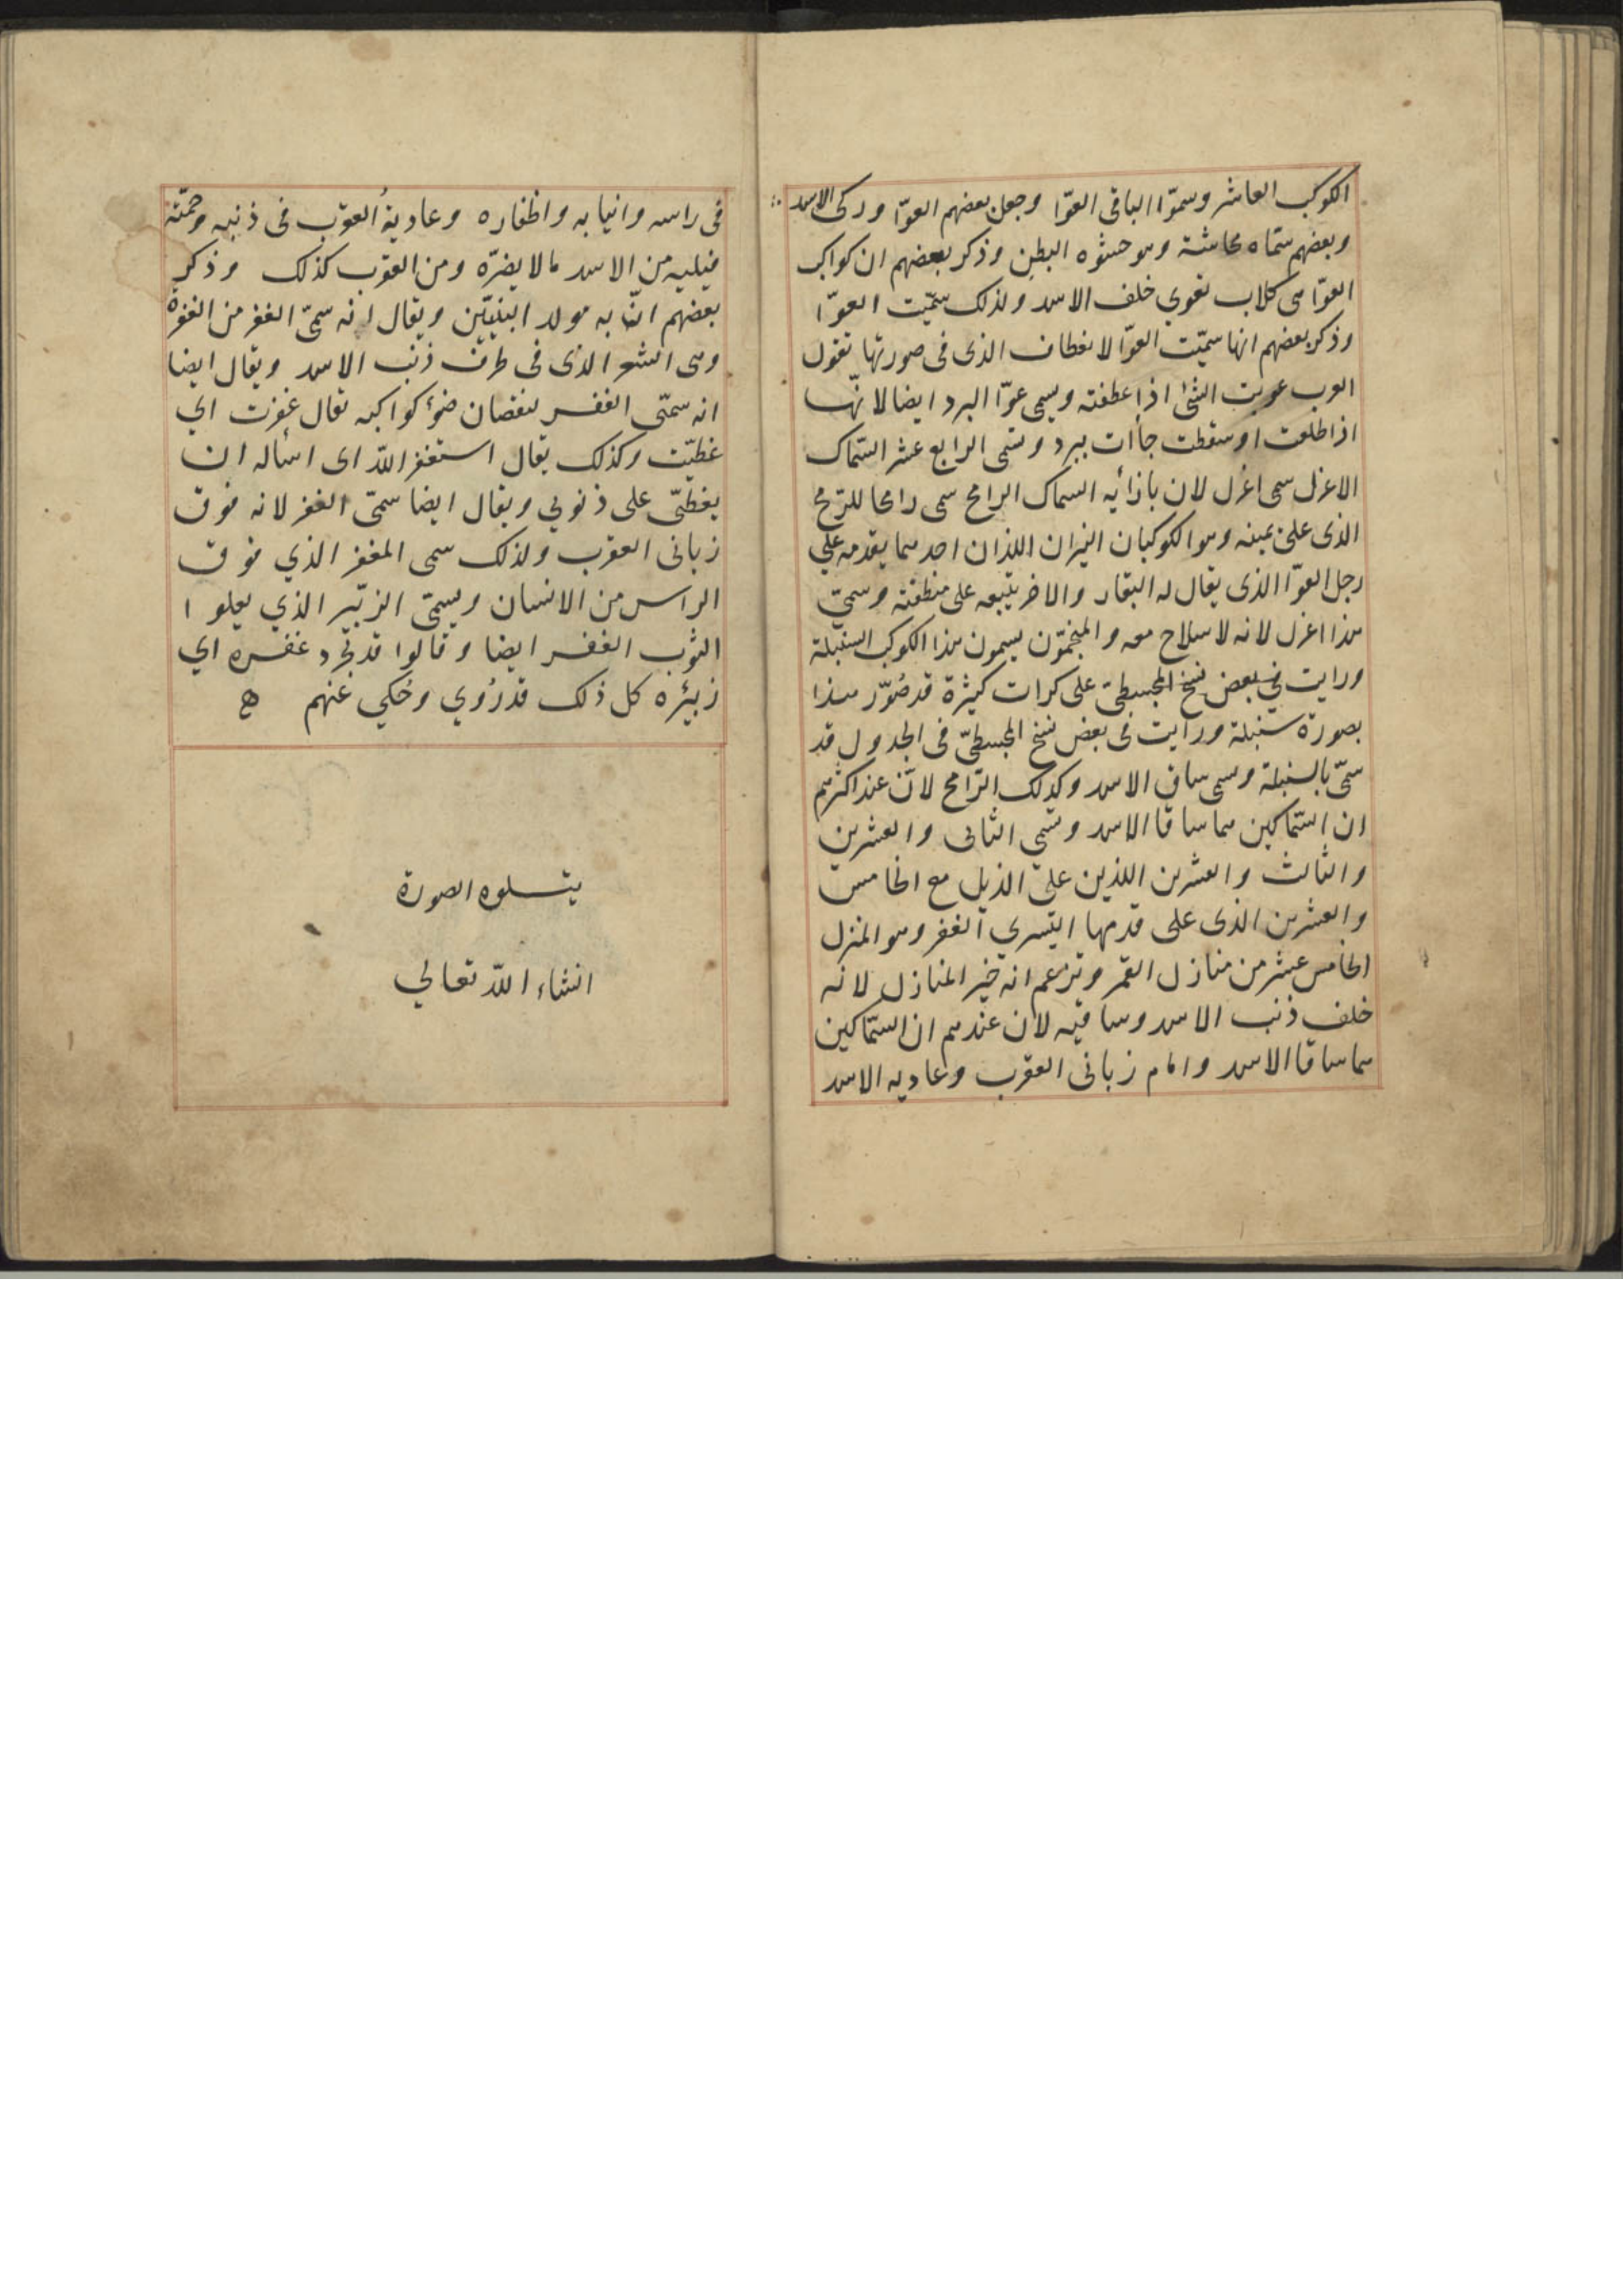 الكوكب العاشر وسموّا الباقى العوّا وجعل بعضهم العوّا وركى الاسد
وبعضهم سمّاه محاشة وهو حشوه البطن وذكر بعضهم ان كواكب
العوّا هى كلاب تعوي خلف الاسد ولذلك سمّيت العوّا
وذكر بعضهم انها سمّيت العوّا لانعطاف الذى فى صورتها تقول
العرب عويت الشئ اذا عطفته ويسمى عوّا البرد ايضا لانّها
اذا طلعت او سقطت جأات ببرد وتسمى الرابع عشر السّماك
الاعزل سمى اعزل لان بازائه السماك الرامح سمى رامحا للرّمح
الذى على يمينه وهو الكوكبان النيران اللذان احدهما يقدمه على
رجل العوّا الذى يقال له البقار والاخر يتبعه على منطقته وسمىّ
هذا اعزل لانه لا سلاح معه والمنجمّون يسمون هذا الكوكب السنبلة
ورايت في بعض نسخ المجسطى على كرات كثيرة قد صُوّر هذا
بصورة سنبلة ورايت فى بعض نسخ المجسطىّ فى الجدول قد
سمّى بالسنبلة وسمى ساق الاسد وكذلك الرّامح لانّ عند اكثرهم
ان السّماكين هما ساقا الاسد وتسمى الثانى والعشرين
والثالث والعشرين اللذين على الذيل مع الخامس
والعشرين الذى على قدمها اليُسري الغفر وهو المنزل
الخامس عشر من منازل القمر وتزعم انه خير المنازل لانه
خلف ذنب الاسد وساقيه لان عندهم ان السّماكين
هما ساقا الاسد وامام زبانى العقرب وعاديه الاسد
فى راسه وانيابه واظفاره وعاديةُ العقرب فى ذنبه وحمّته
فيليه من الاسد ما لا يضرّه ومن العقرب كذلك وذكر
بعضهم انّ به مولد النبيّين ويقال انه سمىّ الغفر من الغفرة
وهى الشعر الذى فى طرف ذنب الاسد ويقال ايضا
انه سمّى الغفر لنقصان ضوء كواكبه تقال غفرت اي
غطيّت وكذلك يقال استغفر اللّه اى اسأله ان
يغطىّ على ذنوبي ويقال ايضا سمىّ الغفر لانه فوق
زبانى العقرب ولذلك سمى المغفر الذي فوق
الراس من الانسان ويسمىّ الزئبر الذي يعلوا
الثوب الغفر ايضا وقالوا قد تجرد غفره اي
زبئره كل ذلك قد رُوي وحُكي عنهم
يتلوه الصورة
انشاء اللّه تعالي